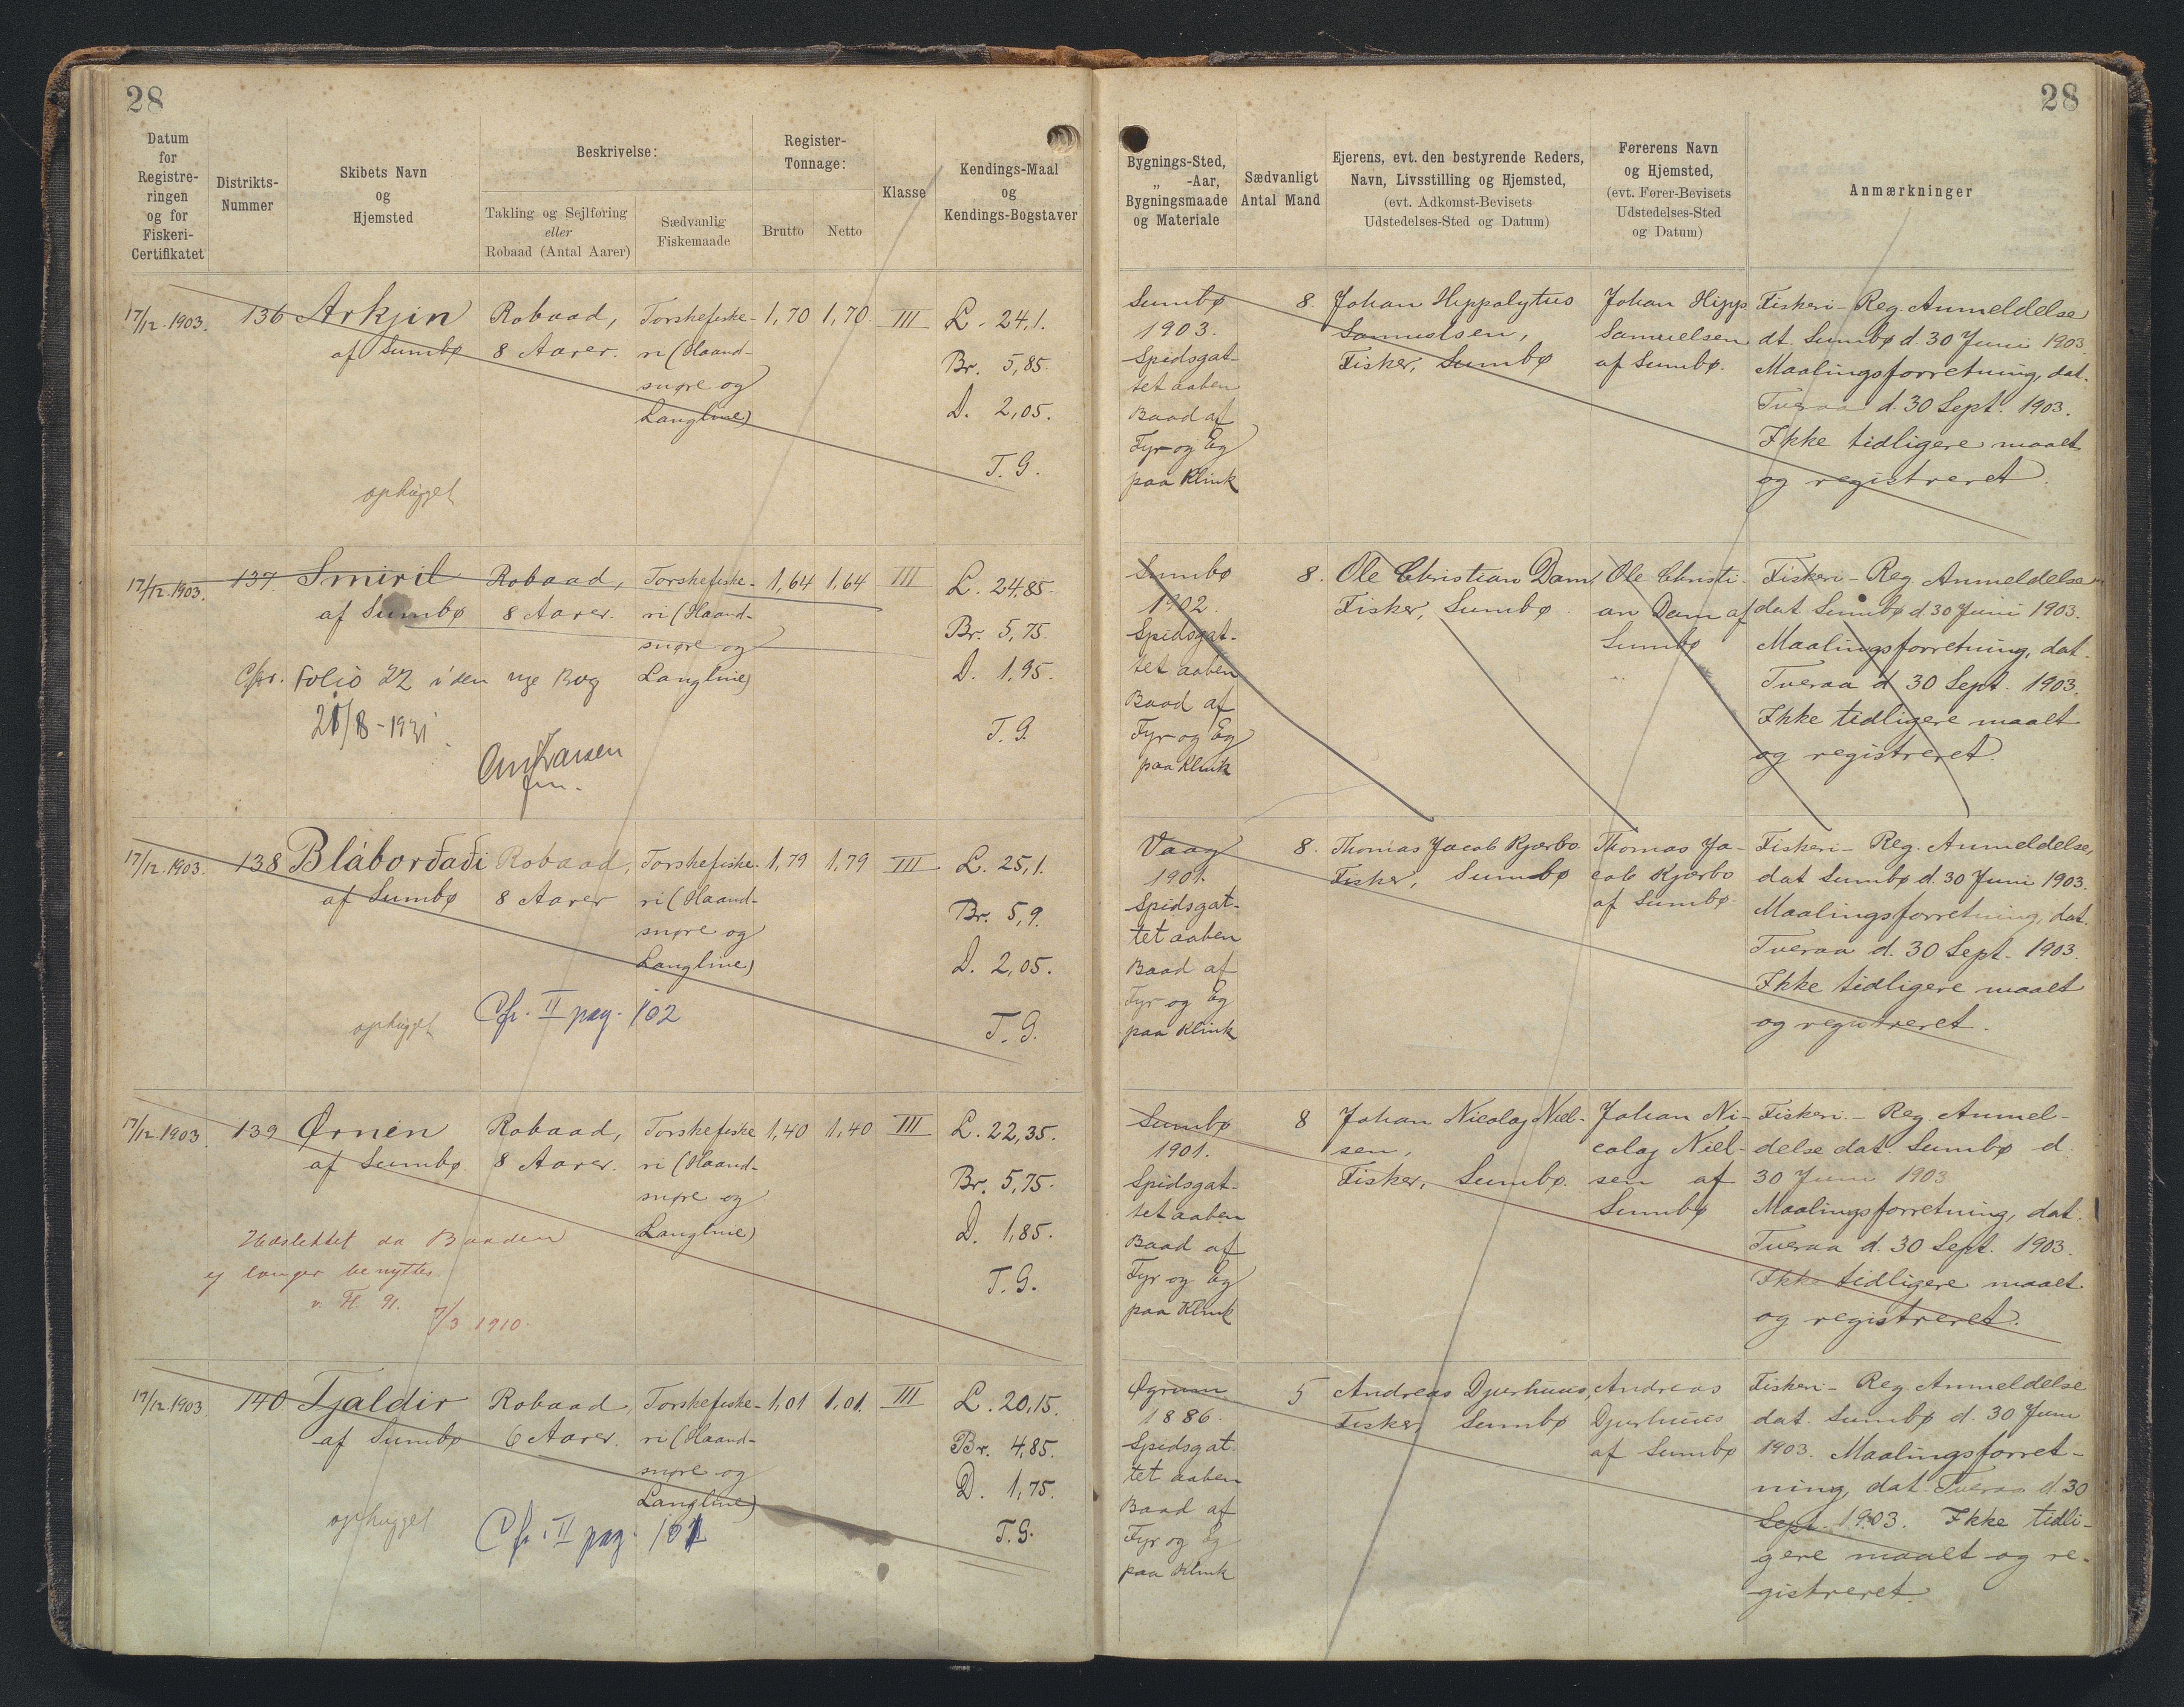 28
28
Datum
for
Registre-
ringen
og for
Fiskeri-
Certifikatet
Distrikts-
Nummer
Skibets Navn
og
Hjemsted
Beskrivelse:
Takling og Sejlføring
eller
Robaad (Antal Aarer)
Sædvanlig
Fiskemaade
Register-
Tonnage:
Brutto
Netto
Klasse
Kendings-Maal
og
Kendings-Bogstaver
Bygnings-Sted,
„ -Aar,
Bygningsmaade
og Materiale
Sædvanligt
Antal Mand
Ejerens, evt. den bestyrende Reders,
Navn, Livsstilling og Hjemsted,
(evt. Adkomst-Bevisets
Udstedelses-Sted og Datum)
Førerens Navn
og Hjemsted,
(evt. Fører-Bevisets
Udstedelses-Sted
og Datum)
Anmærkninger
17/12.1903.
136
Arkjin
af Sumbø
ophugget
Robaad,
8 Aarer.
Torskefiske-
ri (Haand-
snøre og
Langline)
1,70
1,70
III
L. 24,1.
Br. 5,85.
D. 2,05.
T. G.
Sumbø
1903.
Spidsgat-
tet aaben
Baad af
Fyr og Eg
paa Klink
8.
Johan Hippolytus
Samuelsen,
Fisker, Sumbø
Johan Hipp
Samuelsen
af Sumbø.
Fiskeri-Reg. Anmeldelse
dt. Sumbø d. 30 Juni 1903.
Maalingsforretning, dat.
Tveraa d. 30 Sept. 1903.
Ikke tidligere maalt
og registreret.
17/12.1903.
137.
Smiril
af Sumbø
Cfr. Folio 22 i den nye Bog
21/8-1931.
Robaad,
8 Aarer.
Torskefiske-
ri (Haand-
snøre og
Langline)
1,64
1,64
III
L. 24,85.
Br. 5,75.
D. 1,95.
T. G.
Sumbø
1902.
Spidsgat-
tet aaben
Baad af
Fyr og Eg
paa Klink
8.
Ole Christian Dam,
Fisker, Sumbø.
Ole Christi-
an Dam af
Sumbø
Fiskeri-Reg. Anmeldelse
dat Sumbø d. 30 Juni 1903.
Maalingsforretning, dat.
Tveraa d. 30 Sept. 1903.
Ikke tidligere maalt
og registreret.
17/12.1903.
138
Bláborđađi
af Sumbø
ophugget
Cfr. II pag. 102
Robaad,
8 Aarer
Torskefiske-
ri (Haand-
snøre og
Langline)
1,79
1,79
III
L. 25,1.
Br. 5,9.
D. 2,05.
T. G.
Vaag
1901.
Spidsgat-
tet aaben
Baad af
Fyr og Eg
paa Klink
8.
Thomas Jacob Kjærbo
Fisker, Sumbø
Thomas Ja-
cob Kjærbo
af Sumbø.
Fiskeri-Reg. Anmeldelse,
dat Sumbø d. 30 Juni 1903.
Maalingsforretning, dat.
Tveraa d. 30 Sept. 1903.
Ikke tidligere maalt
og registreret.
17/12.1903.
139
Ørnen
af Sumbø.
Udslettet da Baaden
ej længer benyttes
7/3 1910.
Robaad,
8 Aarer.
Torskefiske
ri (Haand-
snøre og
Langline)
1,40
1,40
III
L. 22,35.
Br. 5,75.
D. 1,85.
T. G.
Sumbø
1901.
Spidsgat-
tet aaben
Baad af
Fyr og Eg
paa Klink
8
Johan Nicolaj Niel-
sen,
Fisker, Sumbø.
Johan Ni-
colaj Niel-
sen af
Sumbø
Fiskeri-Reg. Anmel-
delse dat. Sumbø d.
30 Juni 1903
Maalingsforretning, dat.
Tveraa d. 30 Sept. 1903.
Ikke tidligere maalt
og registreret.
17/12.1903
140
Tjaldir
af Sumbø
ophugget
Cfr. II pag. 101
Robaad,
6 Aarer.
Torskefiske-
ri (Haand-
snøre og
Langline)
1,01
1,01.
III
L. 20,15.
Br. 4,85.
D. 1,75.
T. G.
Øgrum
1886.
Spidsgat
tet aaben
Baad af
Fyr og Eg
paa Klink
5
Andreas Djurhuus,
Fisker, Sumbø
Andreas
Djurhuus
af Sumbø
Fiskeri-Reg. Anmeldelse
dat. Sumbø d. 30 Juni
1903. Maalingsforret-
ning, dat. Tveraa d. 30
Sept. 1903. Ikke tidli-
gere maalt og re-
gistreret.